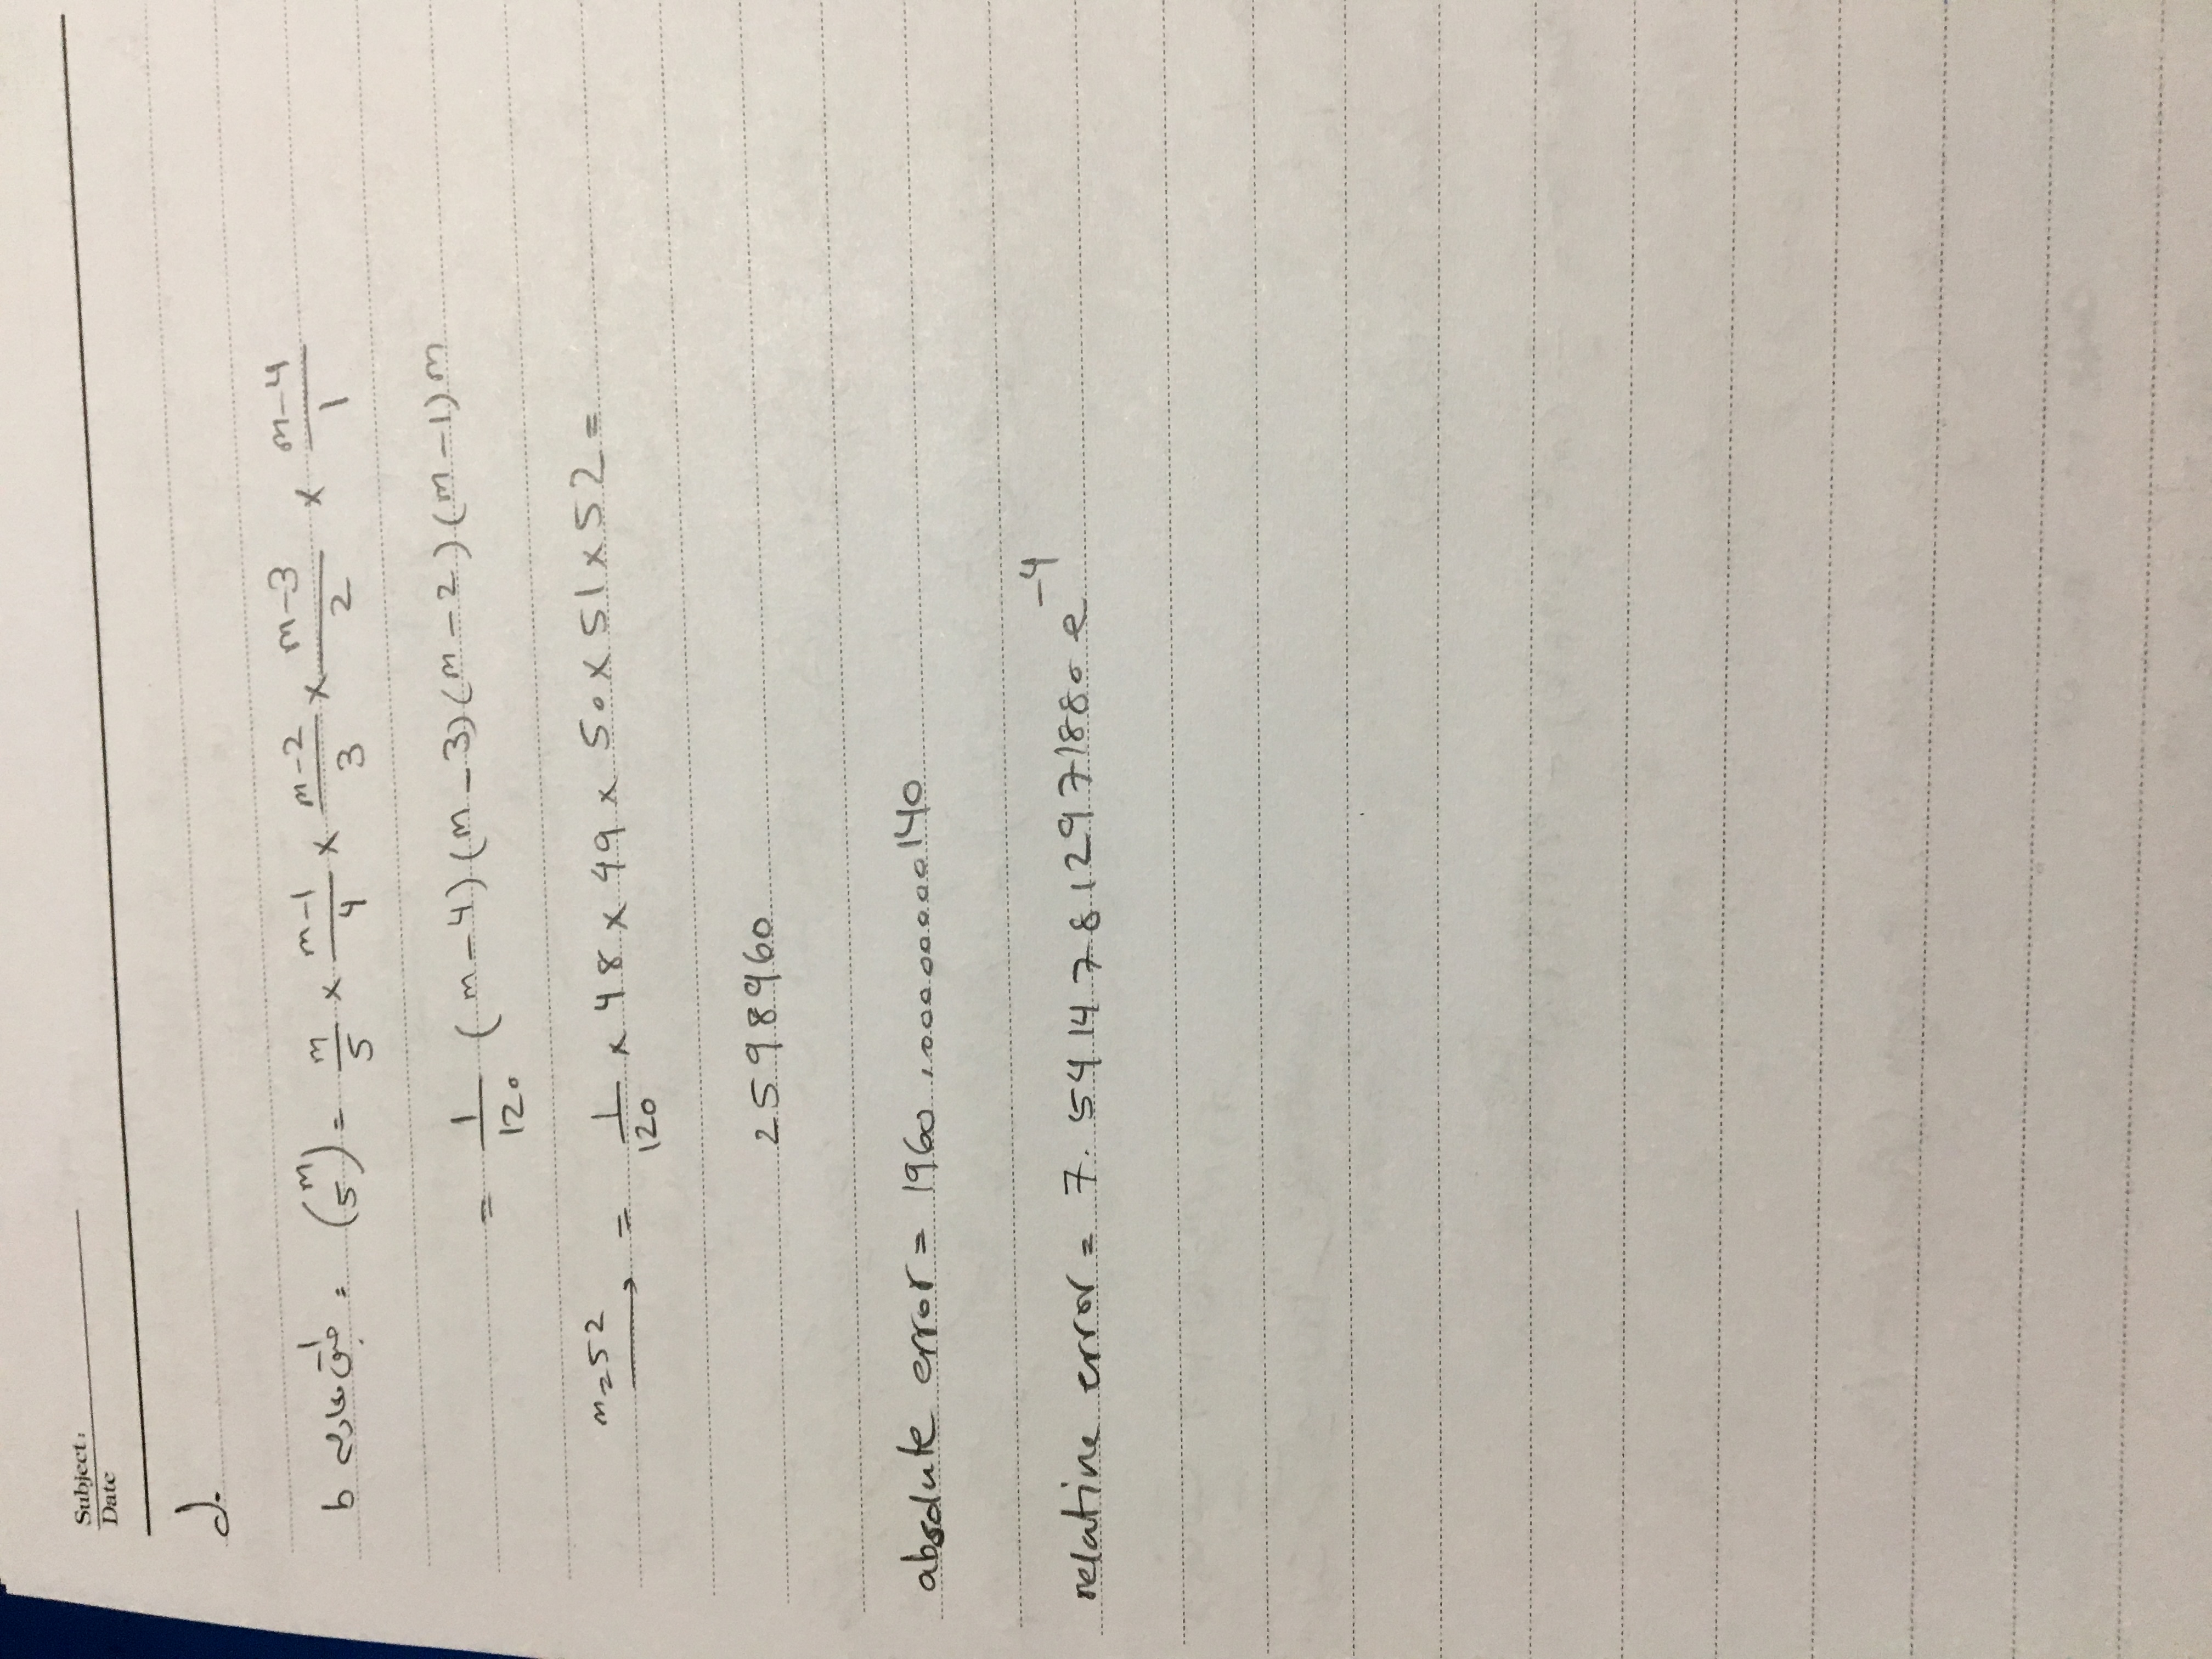 Subject:
Date
d.
طبق معادله b = (m 5) = m/5 × m-1/4 × m-2/3 × m-3/2 × m-4/1
= 1/120 (m-4)(m-3)(m-2)(m-1)m
m=52 → = 1/120 × 48 × 49 × 50 × 51 × 52 =
2598960
absolute error = 1960.000000000140
relative error = 7.54147812971880 e^-4